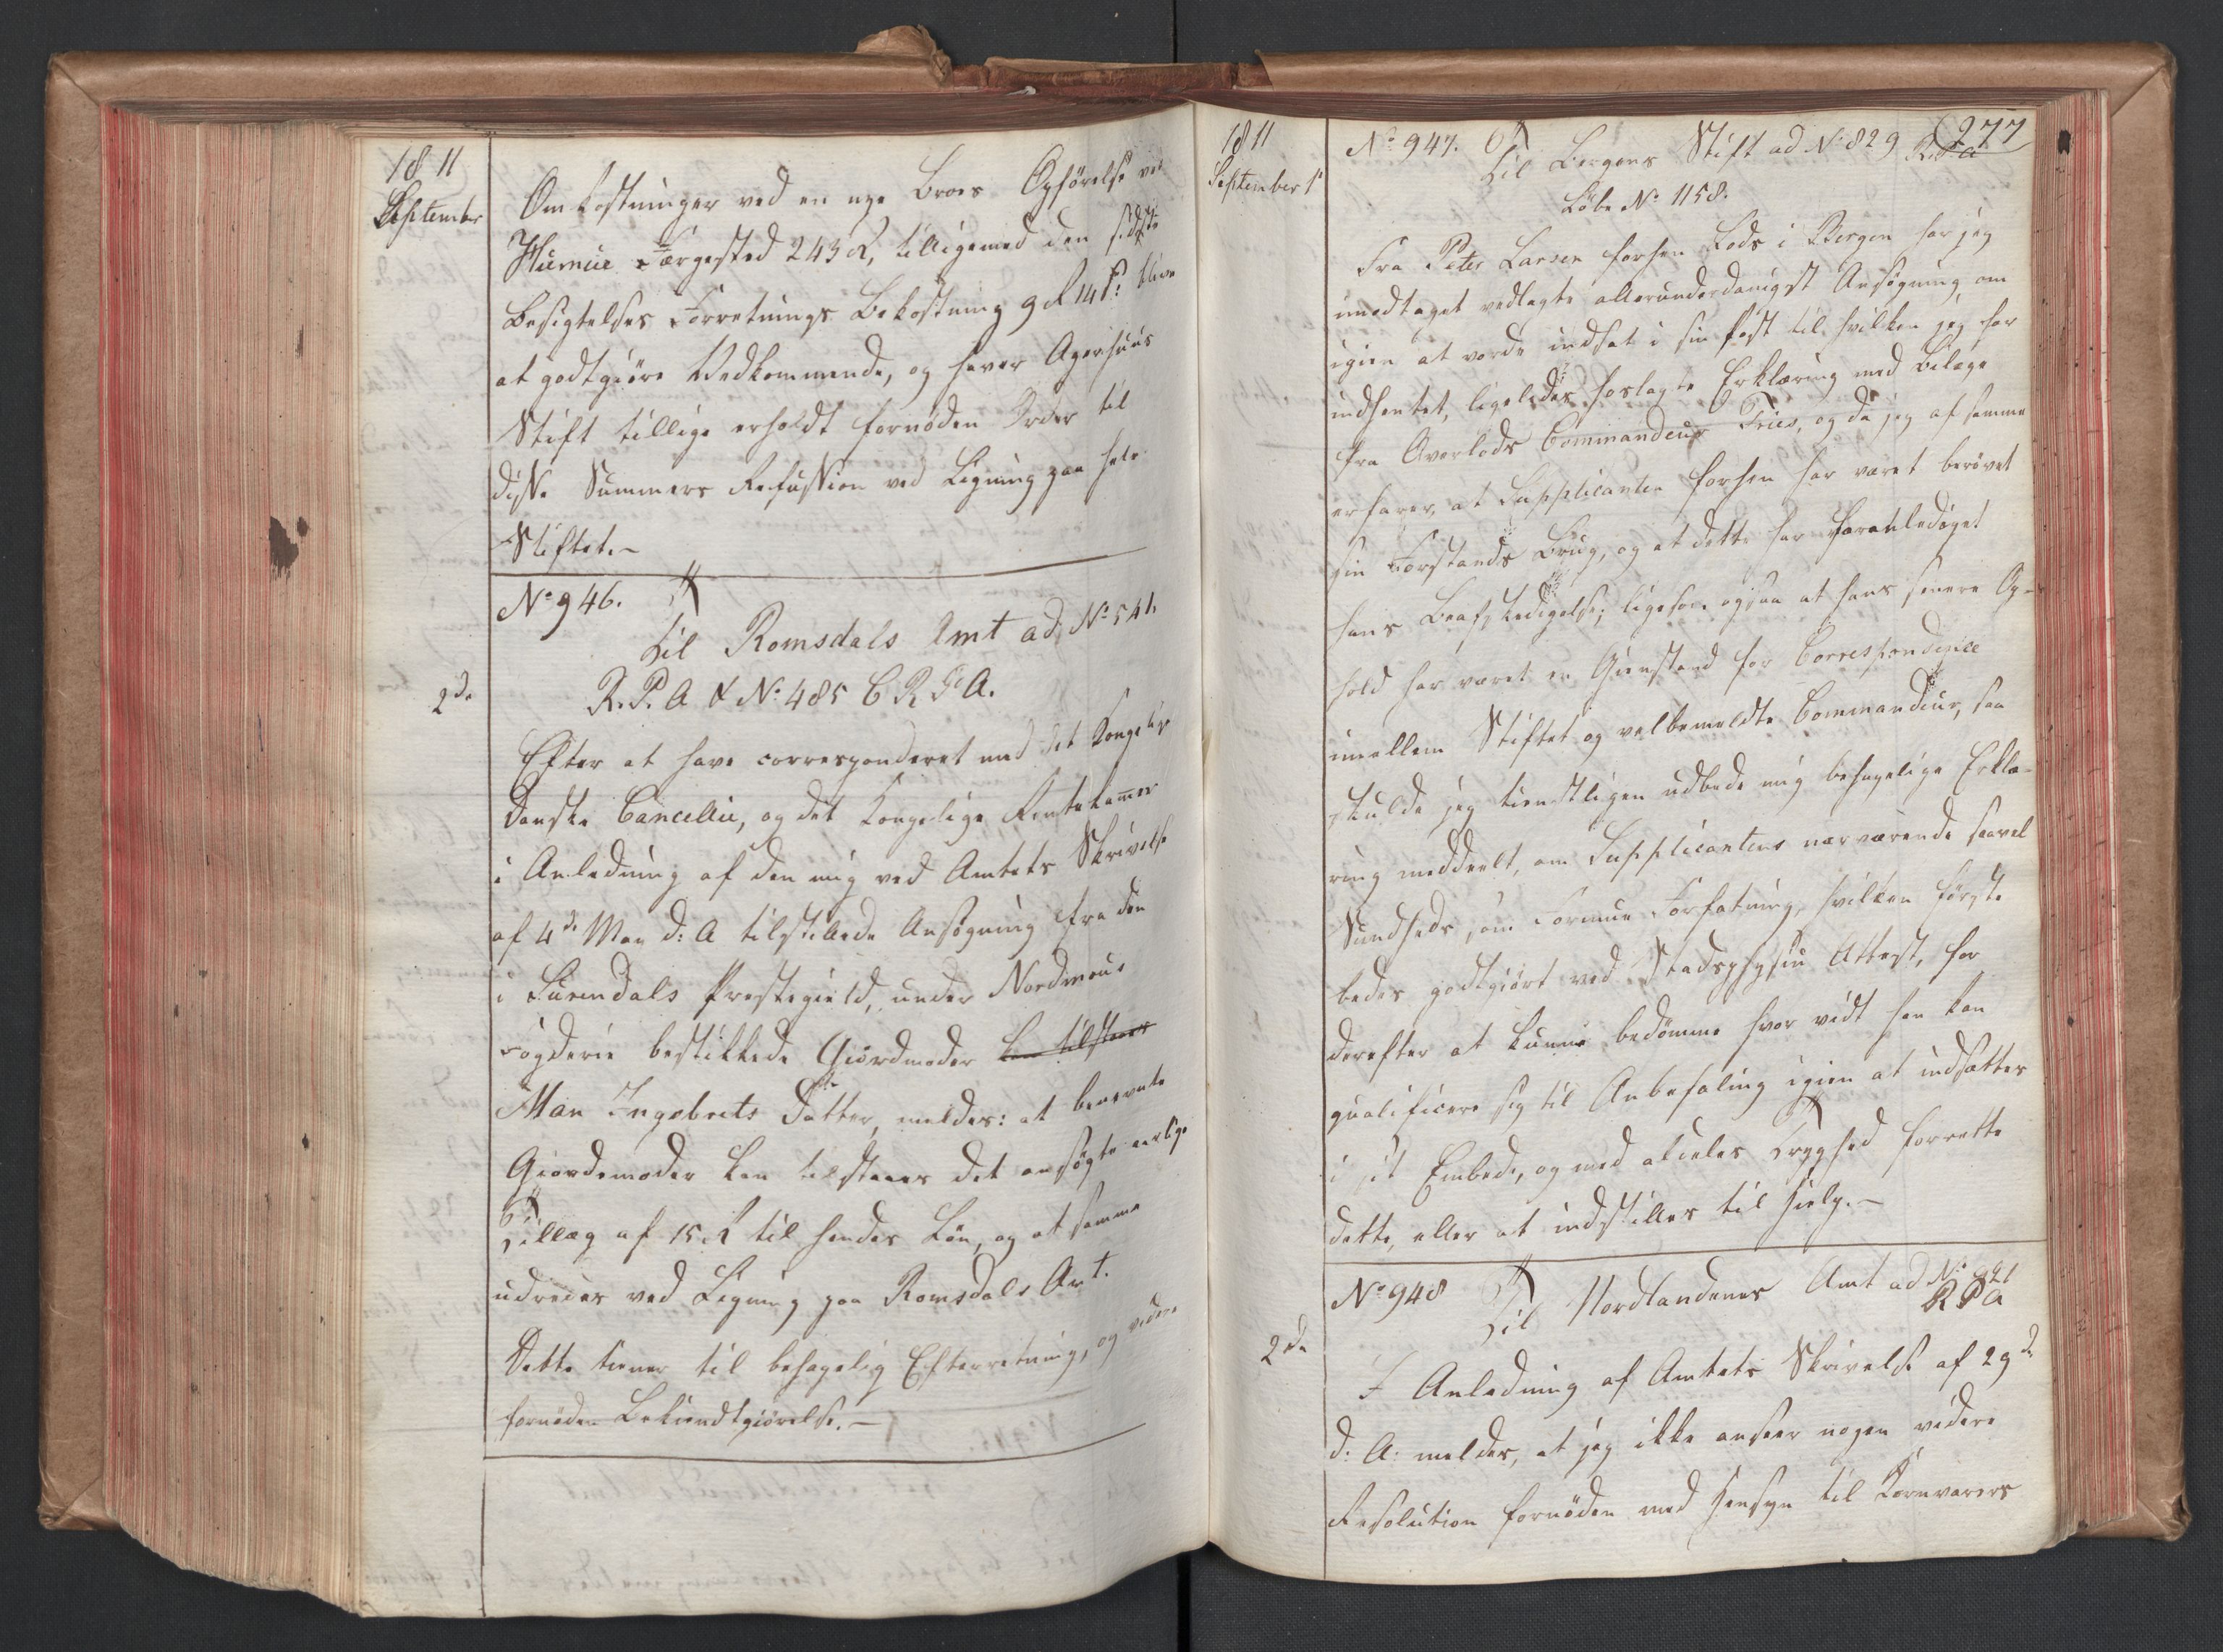 1811
September
Omkostninger ved en nye Broes Opförelse ved
Færgested 243 Rd, tilligemed den sidste
Besigtelses Forretnings Bekostning 9 Rd 14 s: blive
at godtgiöre Vedkommende, og haver Agerhuus
Stift tillige erholdt fornöden Ordre til
disse Summers Refussion ved Ligning paa hele
Stiftet.-
No 946.
Til Romsdals Amt ad No 541.
2de
R. P. A & No 485 C R P A.
Efter at have corresponderet med det Kongelige
Danske Cancellie, og det Kongelige Rentekammer
i Anledning af den mig ved Amtets Skrivelse
af 4de May d: A tilstillede Ansögning fra den
i Surendals Præstegield, under Nordmörs
Fogderie beskikkede Giordmoder kan tilstaaes
Mari Ingebrets Datter, meldes: at benævnte
Giordemoder kan tilstaaes det ansögte aarlige
Tillæg af 15 Rd til hendes Lön, og at samme
udredes ved Ligning paa Romsdals Amt.
Dette tiener til behagelig Efterretning, og videre
fornöden Bekiendtgiörelse.-
277
1811
September
No 947.
Til Bergens Stift ad No 829 R.P.A
Löbe No 1158.
Fra Peter Larsen forhen Lods i Bergen har jeg
modtaget vedlagte allerunderdanigst Ansögning om
igien at vorde indsat i sin Post til hvilken jeg har
indhentet, ligeledes hoslagte Erklæring med Bilage
fra Overlods Commandeur Fries, og da jeg af samme
erfarer, at Supplicanten forhen har været berövet
sin Forstands Brug, og at dette har foranlediget
hans Beafskedigelse; ligesom ogsaa at hans senere Op-
hold har været en Gienstand for Correspondence
imellem Stiftet og velbemeldte Commandeur, saa
skulde jeg tienstligen udbede mig behagelige Erklæ-
ring meddeelt, om Supplicantens nærværende saavel
Sundheds, som Formue Forfatning, hvilken förste
bedes godtgiort ved Stadsphysici Attest, for
derefter at kunne bedömme hvor vidt han kan
qualificere sig til Anbefaling igien at indsættes
i sit Embede, og med aldeles Tryghed forrette
dette, eller at indstilles til Hielp.-
No 948
Til Nordlandenes Amt ad No 921
R P A
2de
I Anledning af Amtets Skrivelse af 29de
d: A: meldes, at jeg ikke anseer nogen videre
Resolution fornöden med Hensyn til Kornvarers